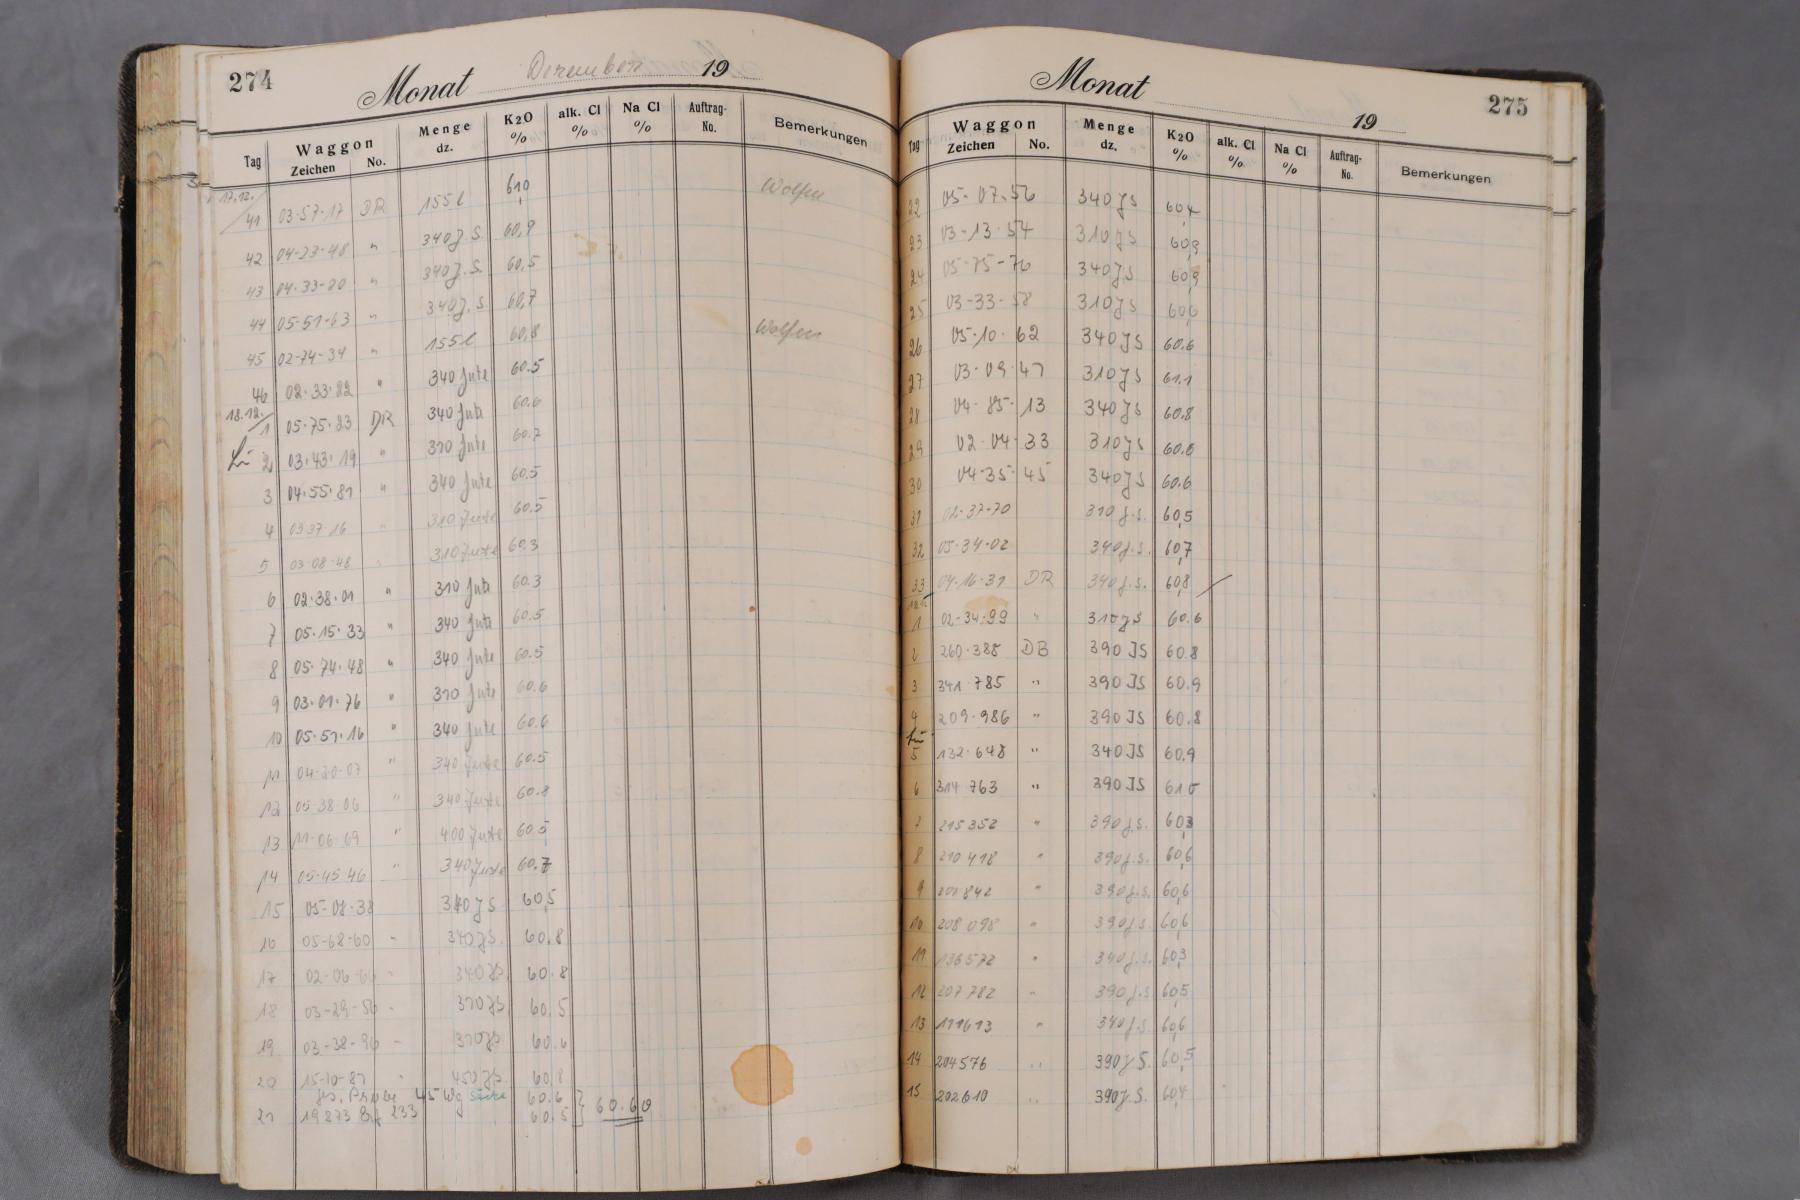 274
Monat Dezember 19
Tag Waggon Zeichen No. Menge dz. K2O % alk. Cl % Na Cl % Auftrag-No. Bemerkungen
17.12.
41 03-57-17 DR 155 l 61,0 Wolfen
42 04-23-48 " 340 J.S. 60,9
43 04-33-20 " 340 J.S. 60,5
44 05-51-63 " 340 J.S. 60,7
45 02-74-34 " 155 l 60,8 Wolfen
46 02.33.82 " 340 Jute 60.5
18.12.
1 05.75.83 DR 340 Jute 60.6
2 03.43.19 " 310 Jute 60.7
3 04.55.81 " 340 Jute 60.5
4 03 37-16 " 310 Jute 60.5
5 03-08-48 " 310 Jute 60.3
6 02.38.01 " 310 Jute 60.3
7 05.15.33 " 340 Jute 60.5
8 05.74.48 " 340 Jute 60.5
9 03.01.76 " 310 Jute 60.6
10 05.51.16 " 340 Jute 60.6
11 04-20-07 " 340 Jute 60.5
12 05-38-06 " 340 Jute 60.8
13 11-06-69 " 400 Jute 60.5
14 05-45-46 " 340 Jute 60.7
15 05-08-38 340 JS 60,5
16 05-68-60 " 340 JS. 60,8
17 02-06- " 340 JS. 60.8
18 03-29-56 " 310 JS 60,5
19 03-38-96 " 310 JS 60.6
20 15-10-87 " 450 JS. 60,8
45 Wg 60.6
21 19873 233 60.5 } 60.60
275
Monat 19
Tag Waggon Zeichen No. Menge dz. K2O % alk. Cl % Na Cl % Auftrag-No. Bemerkungen
22 05-07.56 340 JS 60,4
23 03-13-54 310 JS 60,9
24 05-75-76 340 JS 60,9
25 03-33-58 310 JS 60,6
26 05-10-62 340 JS 60.6
27 03-09-47 310 JS 61.1
28 04-85-13 340 JS 60.8
29 02-04-33 310 JS 60.6
30 04-35-45 340 JS 60.6
31 02-37-70 310 J.S. 60,5
32 05-34-02 340 J.S. 60,7
33 04-16-31 DR 340 J.S. 60,8
1 02-34-99 " 310 JS 60.6
2 260.388 DB 390 JS 60.8
3 341.785 " 390 JS 60.9
4 209.986 " 390 JS 60.8
5 132.648 " 340 JS 60.9
6 314 763 " 390 JS 61 0
7 215352 " 390 J.S. 60,3
8 210418 " 390 J.S. 60,6
9 201842 " 390 J.S. 60,6
10 208098 " 390 J.S. 60,6
11 136572 " 340 J.S. 60,3
12 207782 " 390 J.S 60,5
13 111613 " 340 J.S 60,6
14 204576 " 390 J S. 60,5
15 202610 " 390 J.S. 60,4